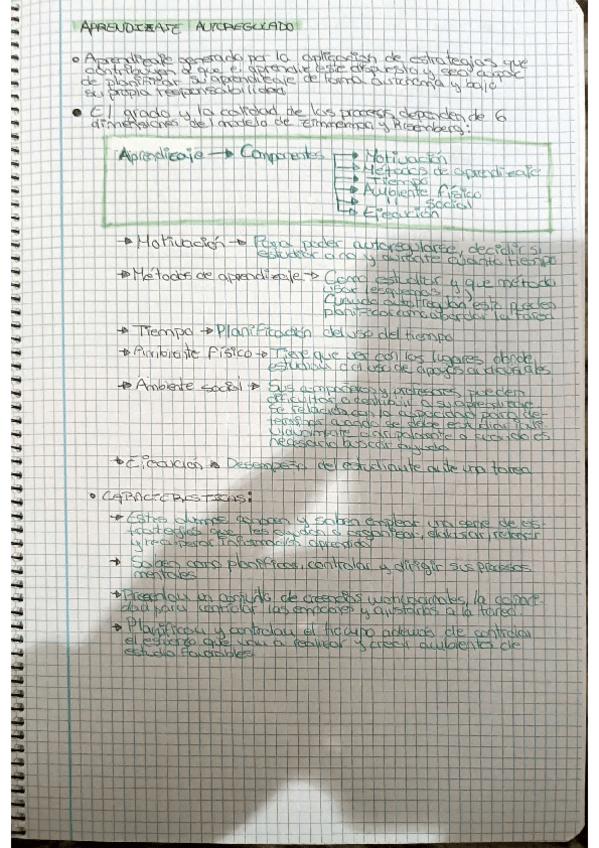 APRENDIZAJE AUTOREGULADO
• Aprendizaje generado por la aplicación de estrategias que
contribuyan a que el aprendiz esté dispuesto y sea capaz
de planificar su aprendizaje de forma autónoma y bajo
su propia responsabilidad.
• El grado y la calidad de los procesos dependen de 6
dimensiones del modelo de Zimmerman y
Aprendizaje → Componentes → Motivación
→ Métodos de aprendizaje
→ Tiempo
→ Ambiente físico
→ " social
→ Ejecución
→ Motivación → Para poder autoregularse, decidir si
estudiar o no y durante cuánto tiempo
→ Métodos de aprendizaje → Como estudiar y que método
usar (esquemas,
planificar como abordar la tarea
→ Tiempo → Planificación del uso del tiempo
→ Ambiente físico → Tiene que ver con los lugares donde
estudian o el uso de apoyos audiovisuales
→ Ambiente social → Sus compañeros y profesores pueden
dificultar o contribuir a su aprendizaje
se relaciona con la capacidad para de-
terminar cuando se debe estudiar
o cuando es
necesario buscar ayuda
→ Ejecución → Desempeño del estudiante ante una tarea
• CARACTERÍSTICAS:
→ Estos alumnos conocen y saben emplear una serie de es-
trategias que les ayudan a organizar, elaborar,
y recuperar información aprendida
→ Saben como planificar, controlar y dirigir sus procesos
mentales
→ Presentan un conjunto de creencias motivacionales, la capaci-
dad para controlar las emociones y ajustarlas a la tarea.
→ Planifican y controlan el tiempo además de controlar
el esfuerzo que van a realizar y crear ambientes de
estudio favorables